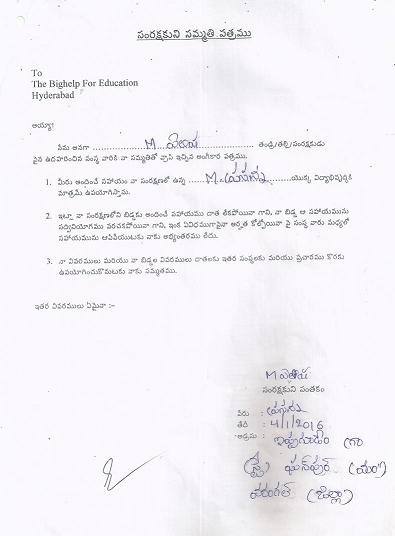 సంరక్షకుని సమ్మతి పత్రము
To
The Bighelp For Education
Hyderabad
అయ్యా!
నేను అనగా .................... M ..................... తండ్రి/తల్లి/సంరక్షకుడు
పైన ఉదహరించిన సంస్థ వారికి నా సమ్మతితో వ్రాసి ఇచ్చిన అంగీకార పత్రము.
1. మీరు అందించే సహాయం నా సంరక్షణలో ఉన్న ....... M. ........యొక్క విద్యాభివృద్ధికి
మాత్రమే ఉపయోగిస్తాను.
2. ఇట్లా నా సంరక్షణలోని బిడ్డకు అందించే సహాయము దాత లేకపోయినా గాని, నా బిడ్డ ఆ సహాయమును
సద్వినియోగము పరచకపోయినా గాని, ఇంక ఏవిధముగానైనా అర్హత కోల్పోయినా పై సంస్థ వారు మధ్యలో
సహాయమును ఆపివేయుటకు నాకు అభ్యంతరము లేదు.
3. నా వివరములు మరియు నా బిడ్డల వివరములు దాతలకు ఇతర సంస్థలకు మరియు ప్రచారము కొరకు
ఉపయోగించుకొనుటకు నాకు సమ్మతము.
ఇతర వివరములు ఏమైనా :-
M
సంరక్షకుని సంతకం
పేరు :
తేది : 4/1/2016
అడ్రసు : ఇప్పగూడెం (గ్రా
(స్టే) ఘన్‌పూర్ (మం)
వరంగల్ (జిల్లా)